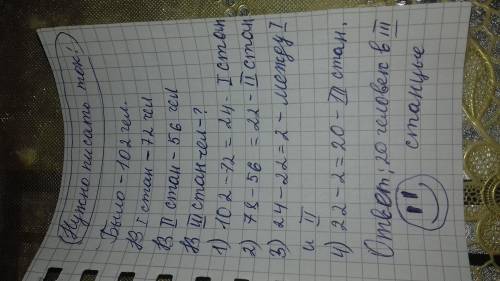 Нужно писать так!
Было - 102 чел.
В I стан - 72 чел
В II стан - 56 чел
В III стан чел - ?
1) 102 - 72 = 24 - I стан
2) 78 - 56 = 22 - II стан
3) 24 - 22 = 2 - между I
и II
4) 22 - 2 = 20 - III стан.
Ответ: 20 человек в III
станцье